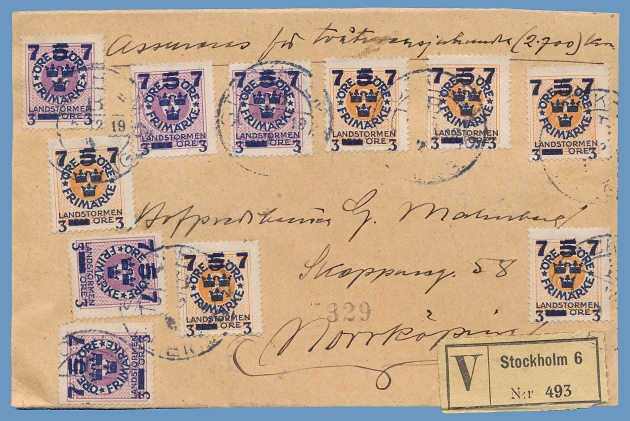 Assurans för tvåtusensjuhundra (2.700) Kr
7 5 7
ÖRE ÖRE
FRIMÄRKE
LANDSTORMEN
3 ÖRE 3
7 5 7
ÖRE ÖRE
FRIMÄRKE
LANDSTORMEN
3 ÖRE 3
7 5 7
ÖRE ÖRE
FRIMÄRKE
LANDSTORMEN
3 ÖRE 3
7 5 7
ÖRE ÖRE
FRIMÄRKE
LANDSTORMEN
3 ÖRE 3
7 5 7
ÖRE ÖRE
FRIMÄRKE
LANDSTORMEN
3 ÖRE 3
7 5 7
ÖRE ÖRE
FRIMÄRKE
LANDSTORMEN
3 ÖRE 3
7 5 7
ÖRE ÖRE
FRIMÄRKE
LANDSTORMEN
3 ÖRE 3
G. Malmberg
7 5 7
ÖRE ÖRE
FRIMÄRKE
LANDSTORMEN
3 ÖRE 3
7 5 7
ÖRE ÖRE
FRIMÄRKE
LANDSTORMEN
3 ÖRE 3
7 5 7
ÖRE ÖRE
FRIMÄRKE
LANDSTORMEN
3 ÖRE 3
58
329
Norrköping
7 5 7
ÖRE ÖRE
FRIMÄRKE
LANDSTORMEN
3 ÖRE 3
V Stockholm 6
N:r 493